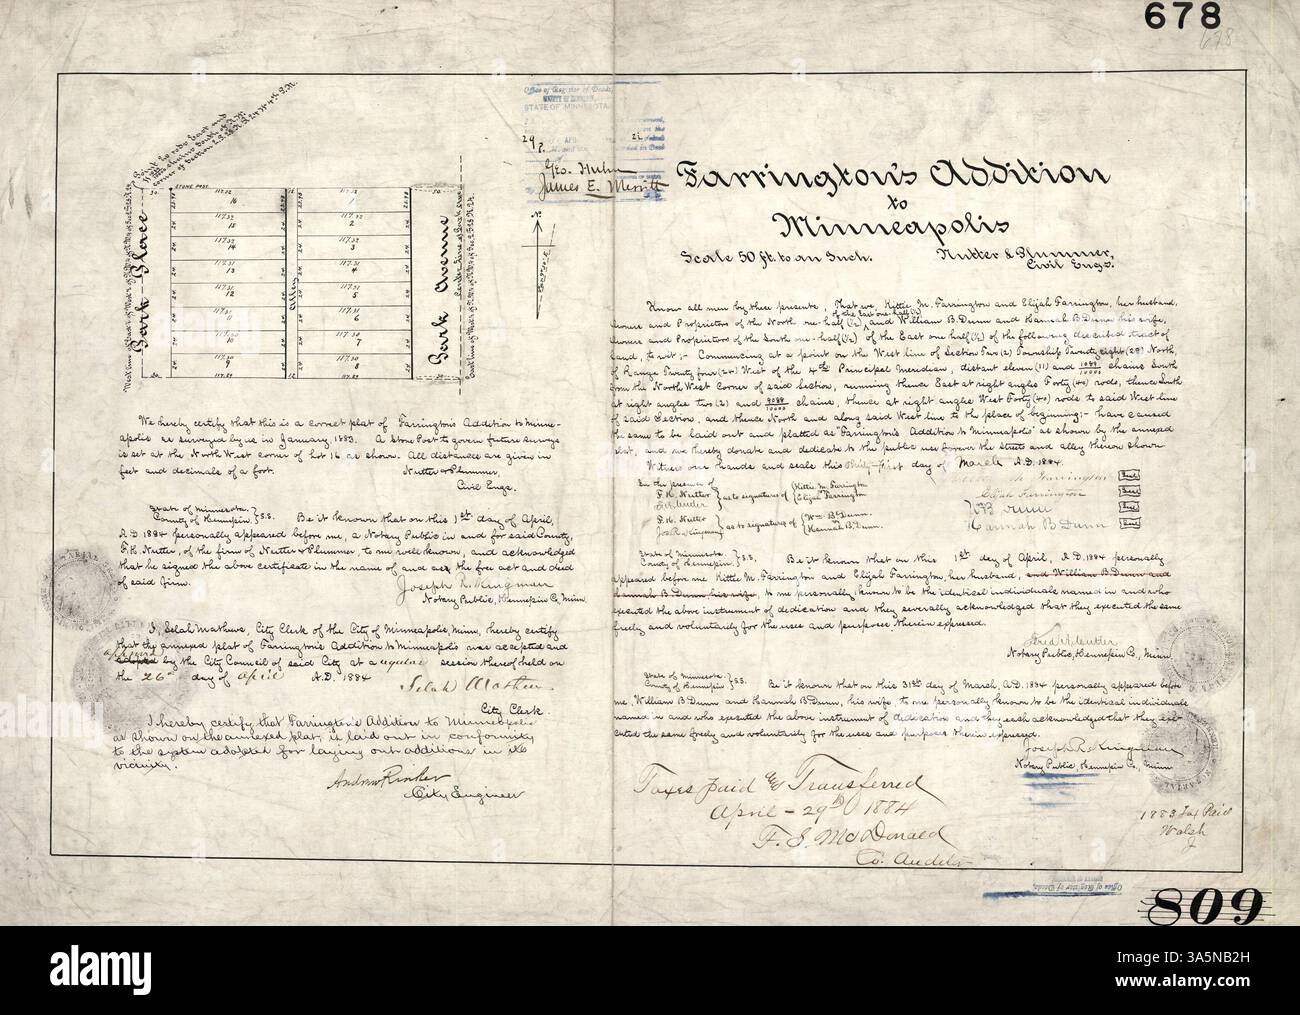 678
678
Office of Register of Deeds,
STATE OF MINNESOTA
Geo. Huhn
James E. Merritt
Farrington's Addition
to
Minneapolis
Scale 50 ft. to an Inch.
Nutter & Plummer,
Civil Engs.
Park Place
Park Avenue
Alley
STONE POST
117.32
16
1
117.32
15
2
117.31
14
3
117.31
13
4
117.31
12
5
117.30
11
6
117.30
10
7
9
8
N.
Know all men by these presents, That we, Kittie M. Farrington and Elijah Farrington, her husband,
of the East one-half (½)
owners and Proprietors of the North one-half (½) and William B. Dunn and Hannah B. Dunn his wife,
owners and Proprietors of the South one-half (½) of the East one half (½) of the following described tract of
land, to wit:- Commencing at a point on the West line of Section Two (2) Township Twenty eight (28) North,
of Range Twenty four (24) West of the 4th Principal Meridian, distant eleven (11) and chains South
from the North West Corner of said Section, running thence East at right angles Forty (40) rods, thence South
at right angles two (2) and chains, thence at right angles West Forty (40) rods to said West line
of said Section, and thence North and along said West line to the place of beginning:- have caused
the same to be laid out and platted as "Farrington's Addition to Minneapolis" as shown by the annexed
plat, and we hereby donate and dedicate to the public use forever the streets and alley thereon shown
Witness our hands and seals this Thirty-first day of March A.D. 1884.
In the presence of
F. H. Nutter
as to signatures of
Kittie M. Farrington
Elijah Farrington
F. H. Nutter
Joseph R. Kingman
as to signatures of
Wm. B. Dunn
Hannah B. Dunn.
Farrington Seal
Elijah Farrington Seal
W B Dunn Seal
Hannah B Dunn Seal
We hereby certify that this is a correct plat of Farrington's Addition to Minne-
apolis as surveyed by us in January, 1883. A Stone Post to govern future surveys
is set at the North West corner of Lot 16 as shown. All distances are given in
feet and decimals of a foot.
Nutter & Plummer,
Civil Engs.
State of Minnesota,
County of Hennepin, } S.S. Be it known that on this 1st day of April,
A.D. 1884 personally appeared before me, a Notary Public in and for said County,
F. H. Nutter, of the firm of Nutter & Plummer, to me well known, and acknowledged
that he signed the above certificate in the name of and as the free act and deed
of said firm.
Joseph R. Kingman
Notary Public, Hennepin Co, Minn
I, Selah Mathews, City Clerk of the City of Minneapolis, Minn, hereby certify
that the annexed plat of Farrington's Addition to Minneapolis was accepted and
approved
adopted by the City Council of said City at a regular session thereof held on
the 26th day of April A.D. 1884
Selah Mathews
City Clerk.
I hereby certify that Farrington's Addition to Minneapolis
as shown on the annexed plat, is laid out in conformity
to the system adopted for laying out additions in its
vicinity.
Andrew Rinker
City Engineer
State of Minnesota
County of Hennepin } S.S. Be it known that on this 1st day of April, A.D. 1884 personally
appeared before me Kittie M. Farrington and Elijah Farrington, her husband, and William B. Dunn and
Hannah B. Dunn his wife, to me personally known to be the identical individuals named in and who
executed the above instrument of dedication and they severally acknowledged that they executed the same
freely and voluntarily for the uses and purposes therein expressed.
Notary Public, Hennepin Co., Minn.
State of Minnesota,
County of Hennepin } S.S. Be it known that on this 31st day of March, A.D. 1884 personally appeared before
me, William B. Dunn, and Hannah B. Dunn, his wife, to me personally known to be the identical individuals
named in and who executed the above instrument of dedication and they each acknowledged that they exe-
cuted the same freely and voluntarily for the uses and purposes therein expressed.
Joseph R. Kingman
Notary Public Hennepin Co., Minn
Taxes paid & Transferred
April - 29th 1884
F. S. McDonald
Co. Auditor
1883 Tax Paid
Walsh
Office of Register of Deeds,
809
alamy
Image ID: 3A5NB2H
www.alamy.com